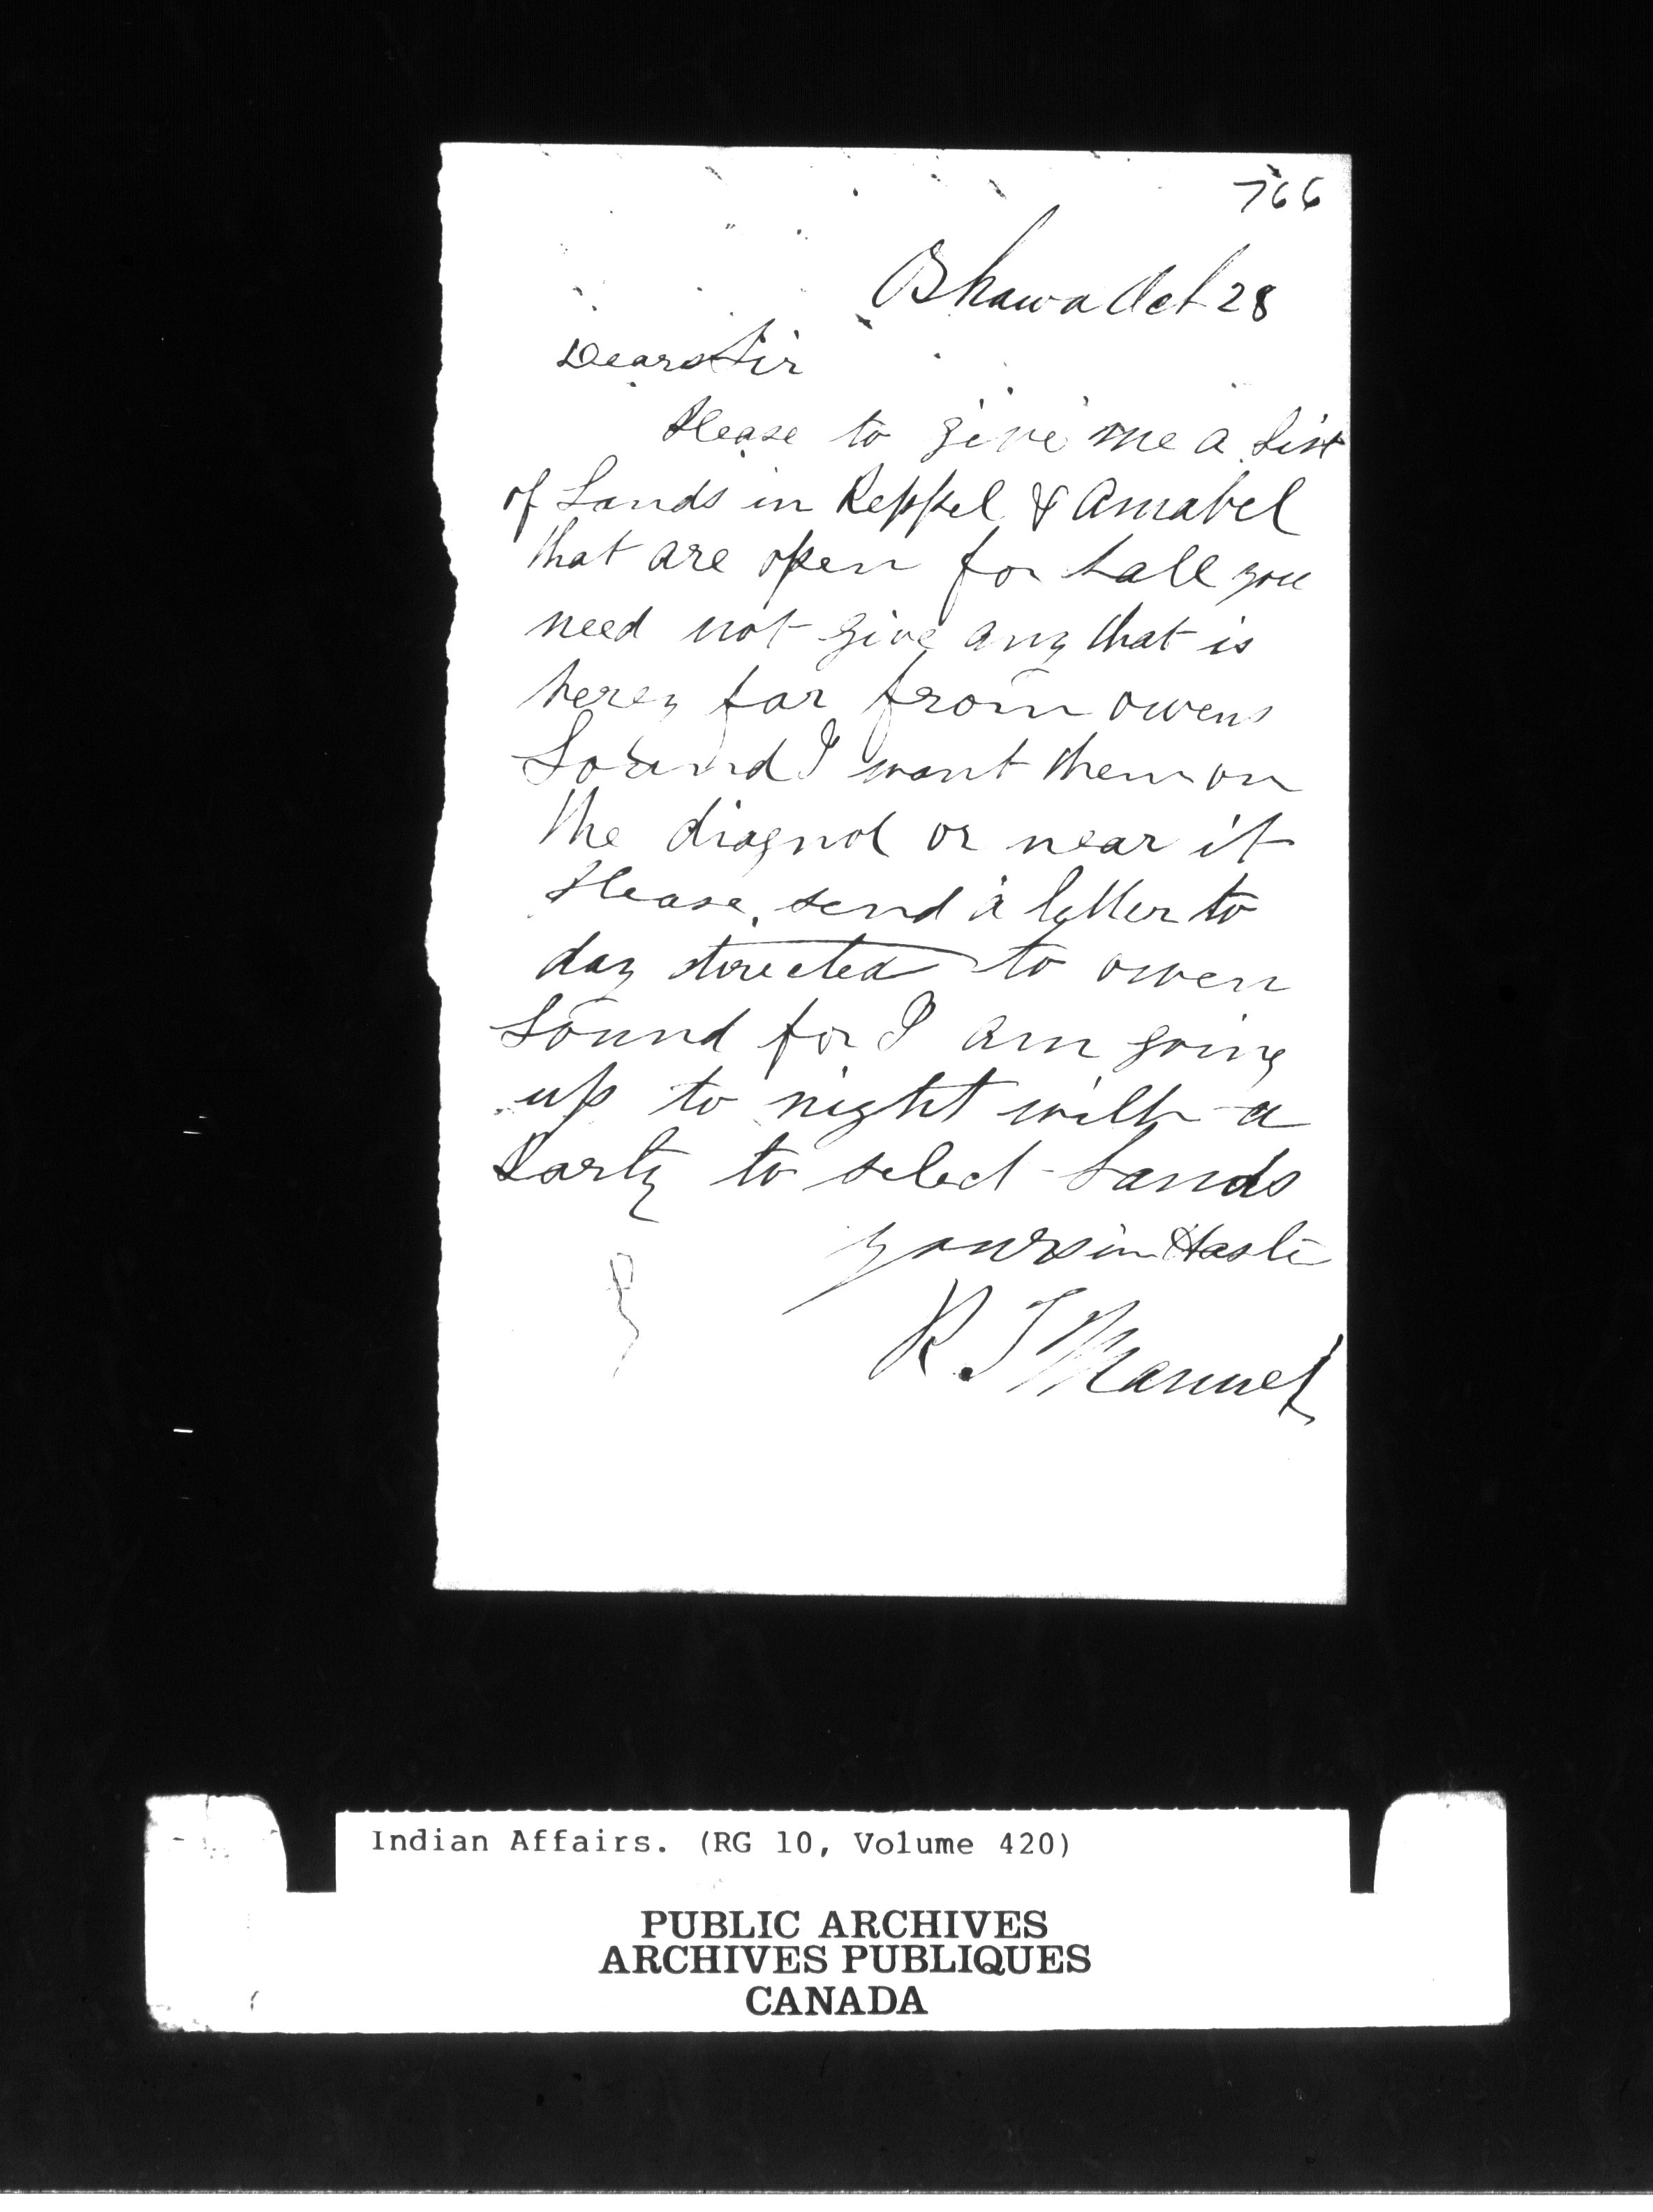 766
Oshawa Oct 28
Dear Sir
Please to give me a List
of Lands in Keppel & Amabel
that are open for Sale you
need not give any that is
verey far from owens
Sound I want them on
the diagnol or near it
Please send a letter to
day directed to owen
Sound for I am going
up to night with a
Party to select Lands
yours in Haste
R. T Manuel
Indian Affairs. (RG 10, Volume 420)
PUBLIC ARCHIVES
ARCHIVES PUBLIQUES
CANADA